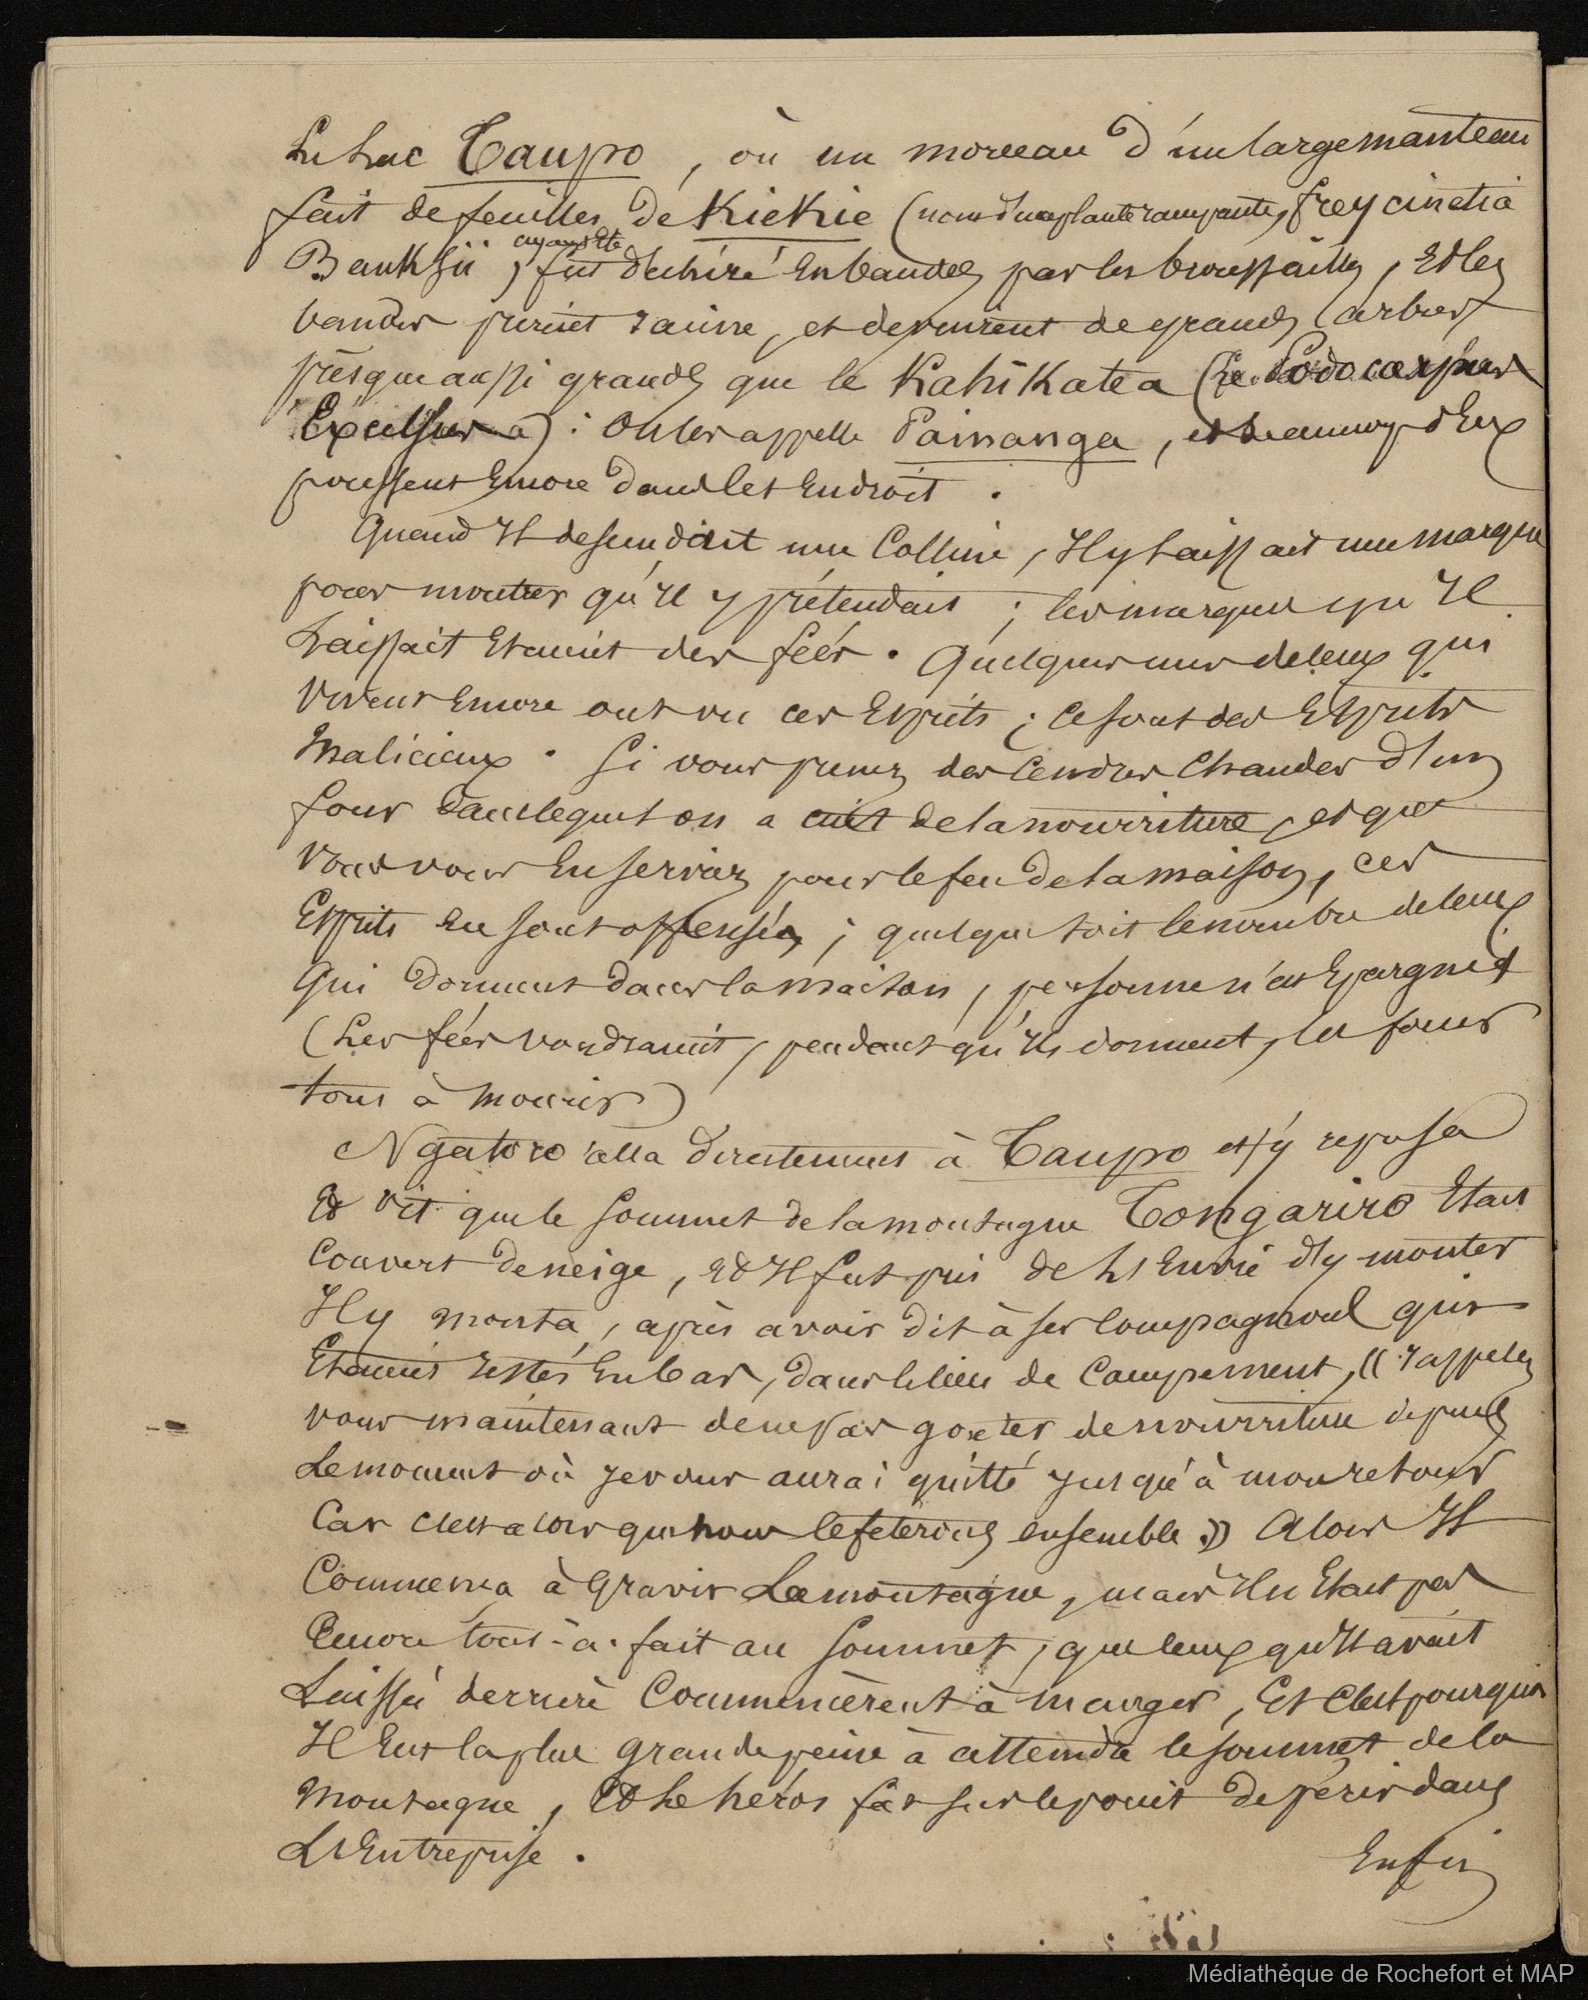 Du Lac Taupo, où un morceau d'un large manteau
fait de feuilles de Kiekie (nom d'une plante rampante, freycinetia
Banksii, ayant été
fut déchiré en bandes par les broussailles, et les
bandes prirent racine, et devinrent de grands arbres
presque aussi grands que le Kahikatea (le Podocarpus
Excelsus) : On les appelle Painanga, et beaucoup d'Eux
poussent Encore dans cet Endroit.
Quand Il descendait une Colline, Il y Laissait une marque
pour montrer qu'Il y prétendait ; les marques qu'Il
Laissait Etaient des fées. Quelques uns de ceux qui
vivent Encore ont vu ces Esprits ; ce sont des Esprits
Malicieux. Si vous prenez des Cendres Chaudes d'un
four dans lequel on a cuit de la nourriture, et que
vous vous En serviez pour le feu de la maison, ces
Esprits En sont offensés ; quelque soit le nombre de ceux
Qui dorment dans la maison, personne n'est Epargné
(Les fées voudraient, pendant qu'Ils dorment, les faire
tous à mourir)
Ngatoro alla directement à Taupo et s'y reposa
Et vit que le Sommet de la montagne Tongariro Etait
Couvert de neige, Et Il fut pris de L'Envie d'y monter
Il y monta, après avoir dit à ses Compagnons qui
Etaient restés En bas, dans le lieu de Campement, (( rappelez
vous maintenant de ne pas goûter de nourriture depuis
Le moment où je vous aurai quitté jusqu'à mon retour
Car c'est alors que nous le fêterons ensemble. )) Alors Il
Commença à Gravir La montagne, mais Il n'Etait pas
Encore tout-à-fait au Sommet, que ceux qu'Il avait
Laissé derrière Commencèrent à manger, Et c'est pourquoi
Il Eut la plus grande peine à atteindre le sommet de la
Montagne, Et Le héros fut sur le point de périr dans
L'Entreprise.
Enfin
Médiathèque de Rochefort et MAP